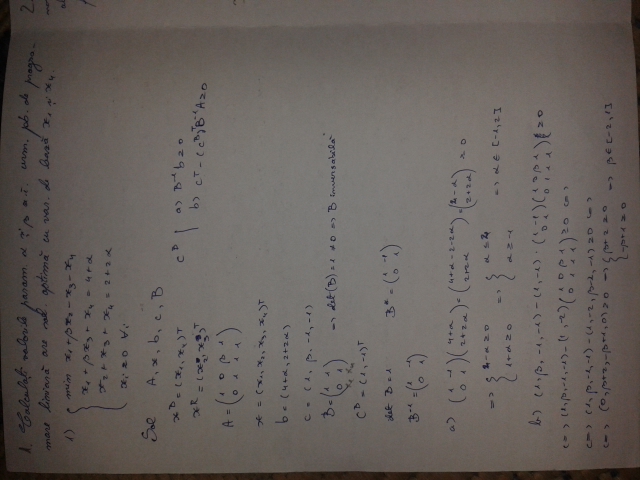 1. Calculați valorile param. α și β a.î. urm. pb. de progra-
mare liniară are sol. optimă cu var. de bază x₁ și x₄.
1) { min x₁ + βx₂ - x₃ - x₄
x₁ + βx₃ + x₄ = 4+α
x₂ + x₃ + x₄ = 2+2α
xᵢ ≥ 0 ∀i
Sol A, x, b, c, B
xᴮ = (x₁, x₄)ᵀ cᴮ | a) B⁻¹b ≥ 0
xᴿ = (x₂, x₃)ᵀ b) cᵀ - (cᴮ)ᵀB⁻¹A ≥ 0
A = (1 0 β 1
0 1 1 1)
x = (x₁, x₂, x₃, x₄)ᵀ
b = (4+α, 2+2α)
c = (1, β, -1, -1)
B = (1 1
0 1) => det(B) = 1 ≠ 0 => B inversabilă
x₁ x₄
Cᴮ = (1, -1)ᵀ
det B = 1 B* = (1 -1
0 1)
B⁻¹ = (1 -1
0 1)
a) (1 -1
0 1) (4+α
2+2α) = (4+α-2-2α
2+2α) = (2-α
2+2α) ≥ 0
=> { 2-α ≥ 0
1+α ≥ 0 => { α ≤ 2
α ≥ -1 => α ∈ [-1, 2]
b) (1, β, -1, -1) - (1, -1) · (1 -1
0 1) (1 0 β 1
0 1 1 1) ≥ 0
<=> (1, β, -1, -1) - (1, -2) (1 0 β 1
0 1 1 1) ≥ 0 <=>
<=> (1, β, -1, -1) - (1, -2, β-2, -1) ≥ 0 <=>
<=> (0, β+2, -β+1, 0) ≥ 0 => { β+2 ≥ 0
-β+1 ≥ 0 => β ∈ [-2, 1]
2.